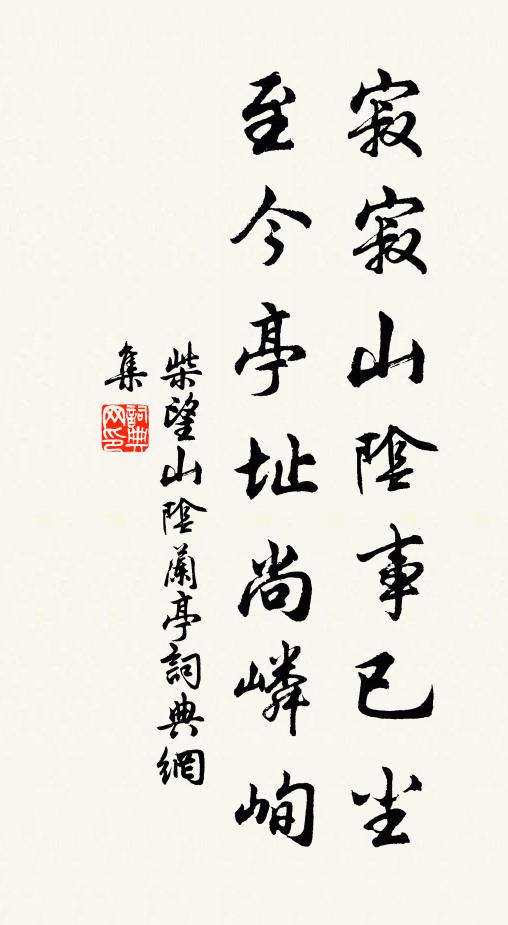 寂寂山陰事已尘
至今亭址尚嶙峋
柴望山陰蘭亭詞典網
集
詞典网印